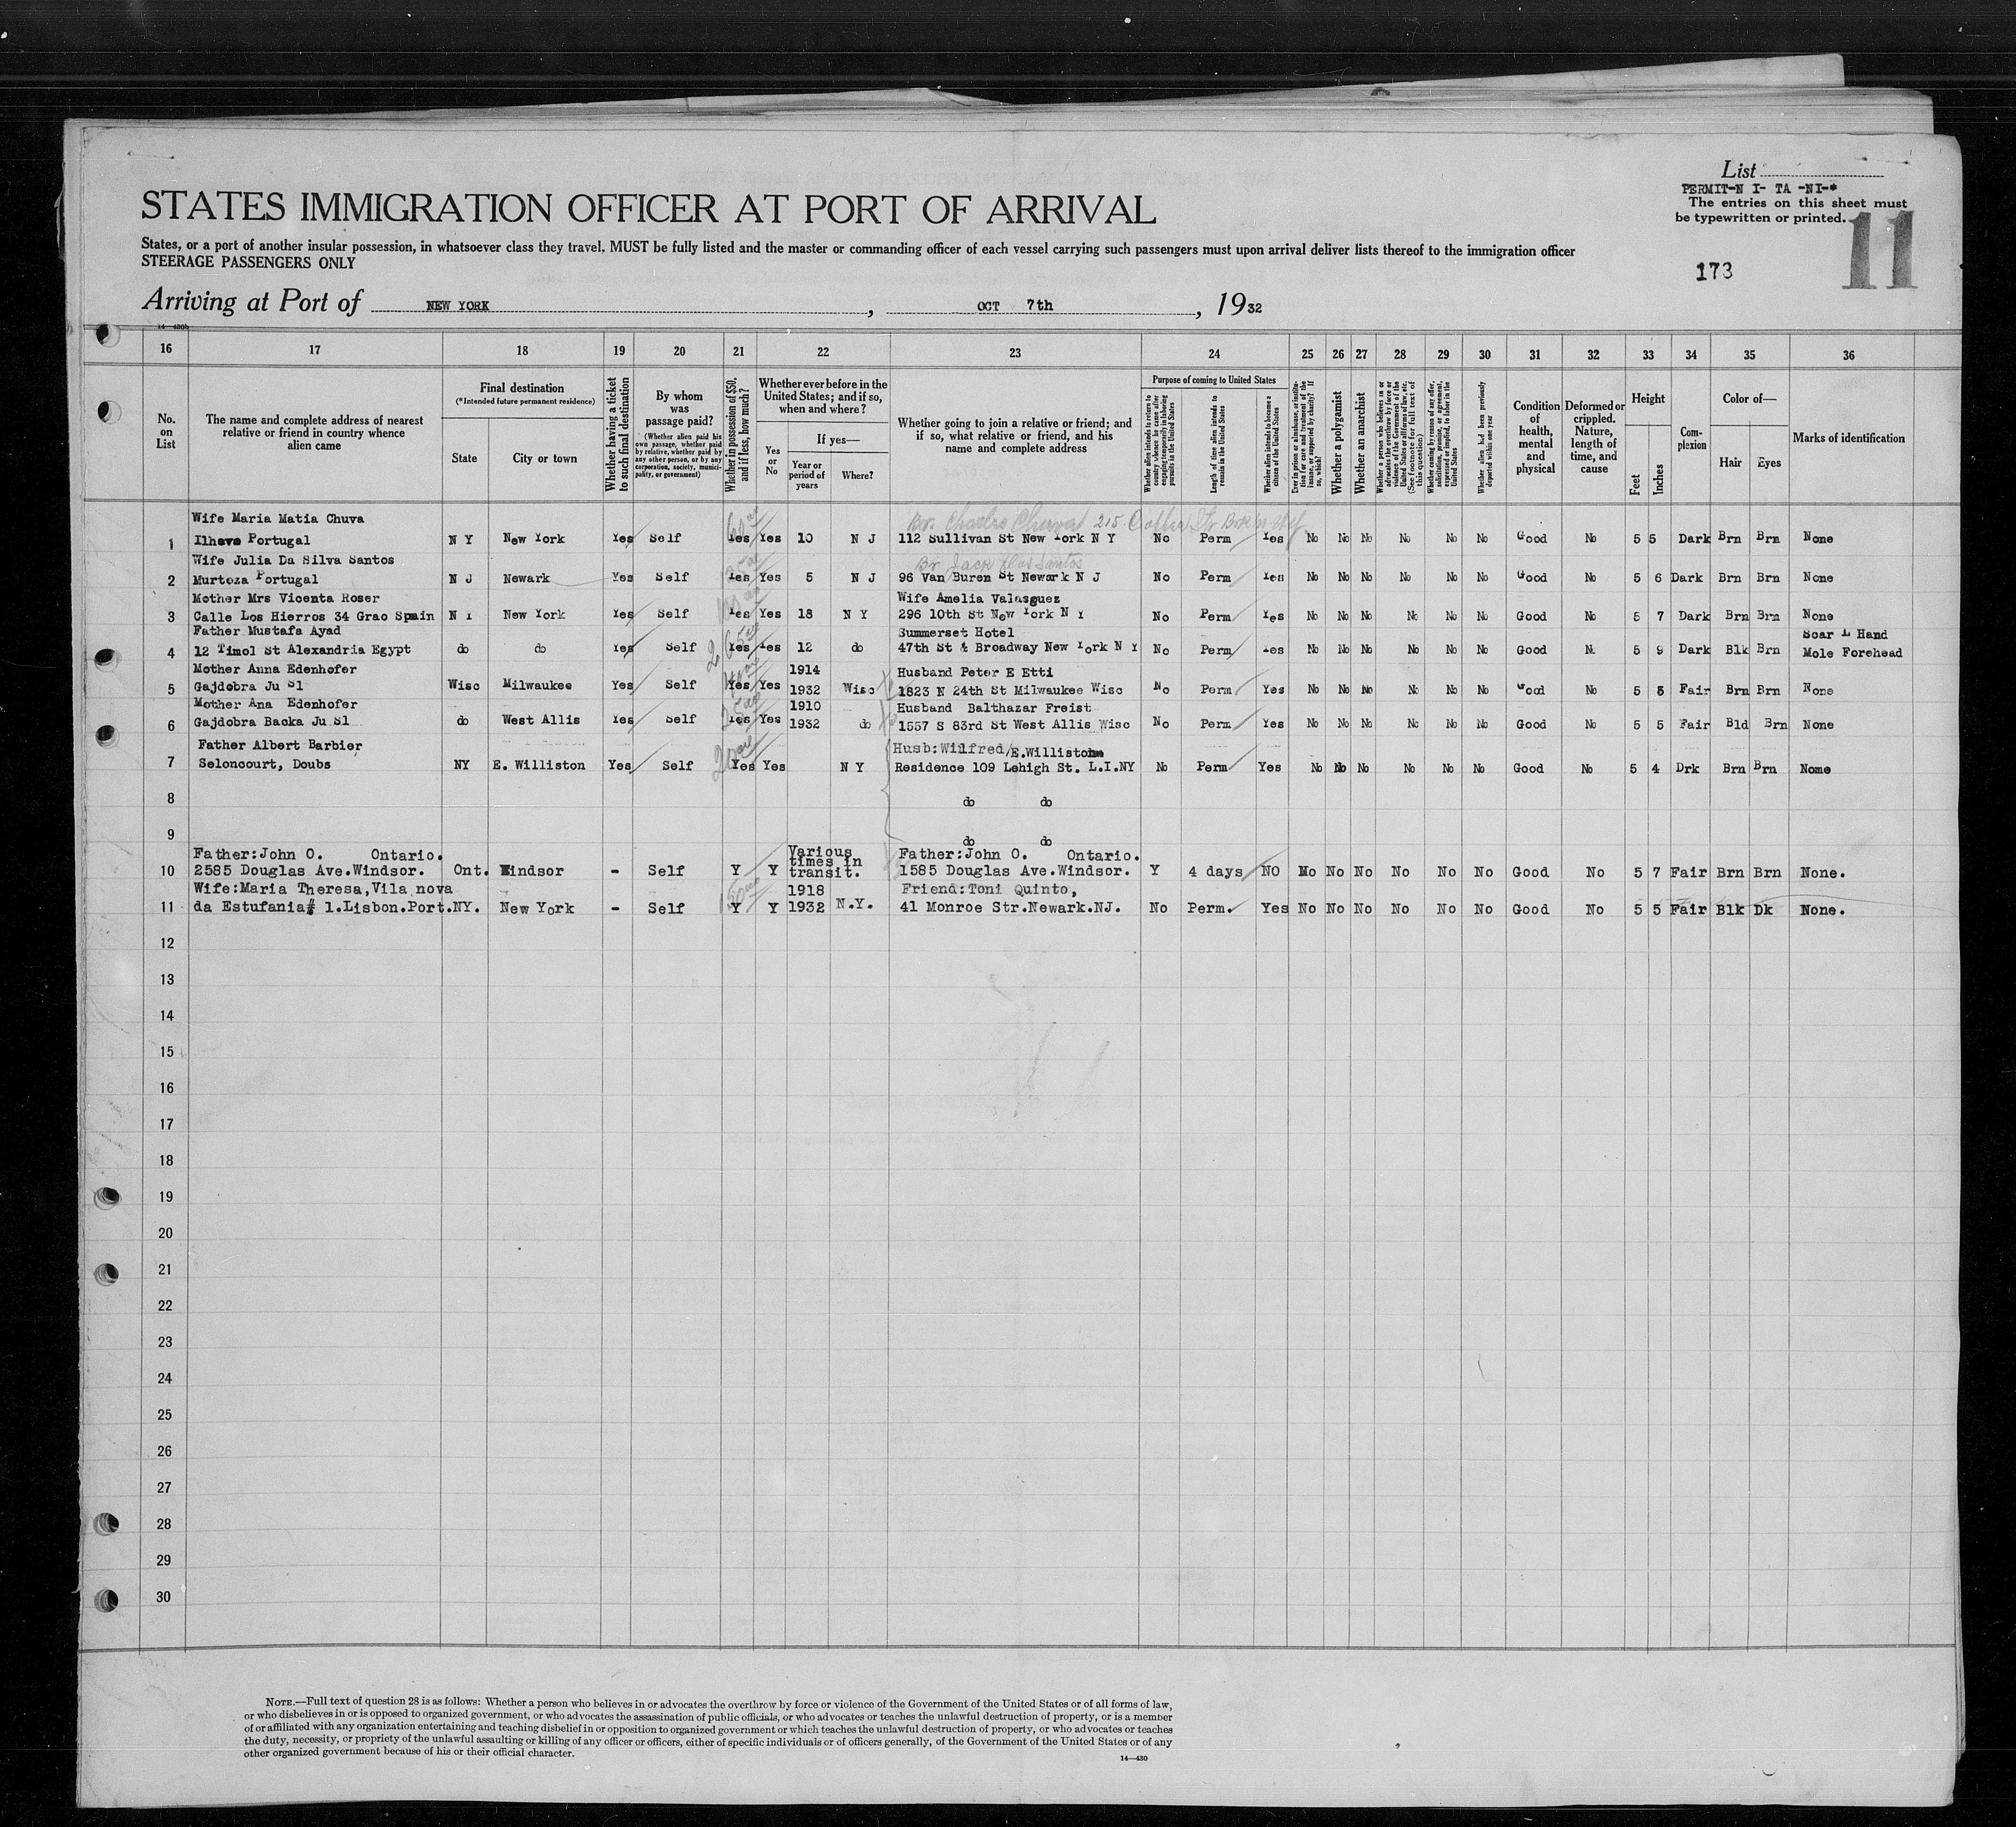 List
PERMIT-N I- TA -NI-*
The entries on this sheet must
be typewritten or printed.
11
173
STATES IMMIGRATION OFFICER AT PORT OF ARRIVAL
States, or a port of another insular possession, in whatsoever class they travel, MUST be fully listed and the master or commanding officer of each vessel carrying such passengers must upon arrival deliver lists thereof to the immigration officer
STEERAGE PASSENGERS ONLY
Arriving at Port of NEW YORK, OCT 7th, 1932
14—430b
16 17 18 19 20 21 22 23 24 25 26 27 28 29 30 31 32 33 34 35 36
No. on List
The name and complete address of nearest relative or friend in country whence alien came
Final destination
(*Intended future permanent residence)
State
City or town
Whether having a ticket to such final destination
By whom was passage paid?
(Whether alien paid his own passage, whether paid by relative, whether paid by any other person, or by any corporation, society, municipality, or government)
Whether in possession of $50, and if less, how much?
Whether ever before in the United States; and if so, when and where?
Yes or No
If yes—
Year or period of years
Where?
Whether going to join a relative or friend; and if so, what relative or friend, and his name and complete address
Purpose of coming to United States
Whether alien intends to return to country whence he came after engaging temporarily in laboring pursuits in the United States
Length of time alien intends to remain in the United States
Whether alien intends to become a citizen of the United States
Ever in prison or almshouse, or institution for care and treatment of the insane, or supported by charity? If so, which?
Whether a polygamist
Whether an anarchist
Whether a person who believes in or advocates the overthrow by force or violence of the Government of the United States or all forms of law, etc. (See footnote for full text of this question)
Whether coming by reason of any offer, solicitation, promise, or agreement, expressed or implied, to labor in the United States
Whether alien had been previously deported within one year
Condition of health, mental and physical
Deformed or crippled. Nature, length of time, and cause
Height
Feet
Inches
Complexion
Color of—
Hair
Eyes
Marks of identification
Wife Maria Matia Chuva
Br. Charles Chuva 215
1 Ilhavo Portugal N Y New York Yes Self Yes Yes 10 N J 112 Sullivan St New York N Y No Perm Yes No No No No No No Good No 5 5 Dark Brn Brn None
Wife Julia Da Silva Santos
Br Jack Dos Santos
2 Murtoza Portugal N J Newark Yes Self Yes Yes 5 N J 96 Van Buren St Newark N J No Perm Yes No No No No No No Good No 5 6 Dark Brn Brn None
Mother Mrs Vicenta Roser Wife Amelia Valasguez
3 Calle Los Hierros 34 Grao Spain N Y New York Yes Self Yes Yes 18 N Y 296 10th St New York N Y No Perm Yes No No No No No No Good No 5 7 Dark Brn Brn None
Father Mustafa Ayad Summerset Hotel Scar L Hand
4 12 Timol St Alexandria Egypt do do Yes Self Yes Yes 12 do 47th St & Broadway New York N Y No Perm Yes No No No No No No Good N. 5 9 Dark Blk Brn Mole Forehead
Mother Anna Edenhofer 1914 Husband Peter E Etti
5 Gajdobra Ju Sl Wisc Milwaukee Yes Self Yes Yes 1932 Wisc 1823 N 24th St Milwaukee Wisc No Perm Yes No No No No No No Good No 5 Fair Brn Brn None
Mother Ana Edenhofer 1910 Husband Balthazar Freist
6 Gajdobra Backa Ju Sl do West Allis Yes Self Yes Yes 1932 do 1557 S 83rd St West Allis Wisc No Perm Yes No No No No No No Good No 5 5 Fair Bld Brn None
Father Albert Barbier, Husb:Wilfred/E.Williston
7 Seloncourt, Doubs NY E. Williston Yes Self Yes Yes N Y Residence 109 Lehigh St. L.I.NY No Perm Yes No No No No No No Good No 5 4 Drk Brn Brn Nome
8 do do
9 do do
Father:John O. Ontario. Various times in Father:John O. Ontario.
10 2585 Douglas Ave.Windsor. Ont. Windsor - Self Y Y transit. 1585 Douglas Ave.Windsor. Y 4 days NO No No No No No No Good No 5 7 Fair Brn Brn None.
Wife:Maria Theresa,Vila nova 1918 Friend:Toni Quinto,
11 da Estufania# 1.Lisbon.Port.NY. New York - Self Y Y 1932 N.Y. 41 Monroe Str.Newark.NJ. No Perm. Yes No No No No No No Good No 5 5 Fair Blk Dk None.
12
13
14
15
16
17
18
19
20
21
22
23
24
25
26
27
28
29
30
NOTE.—Full text of question 28 is as follows: Whether a person who believes in or advocates the overthrow by force or violence of the Government of the United States or of all forms of law,
or who disbelieves in or is opposed to organized government, or who advocates the assassination of public officials, or who advocates or teaches the unlawful destruction of property, or is a member
of or affiliated with any organization entertaining and teaching disbelief in or opposition to organized government or which teaches the unlawful destruction of property, or who advocates or teaches
the duty, necessity, or propriety of the unlawful assaulting or killing of any officer or officers, either of specific individuals or of officers generally, of the Government of the United States or of any
other organized government because of his or their official character.
14—430